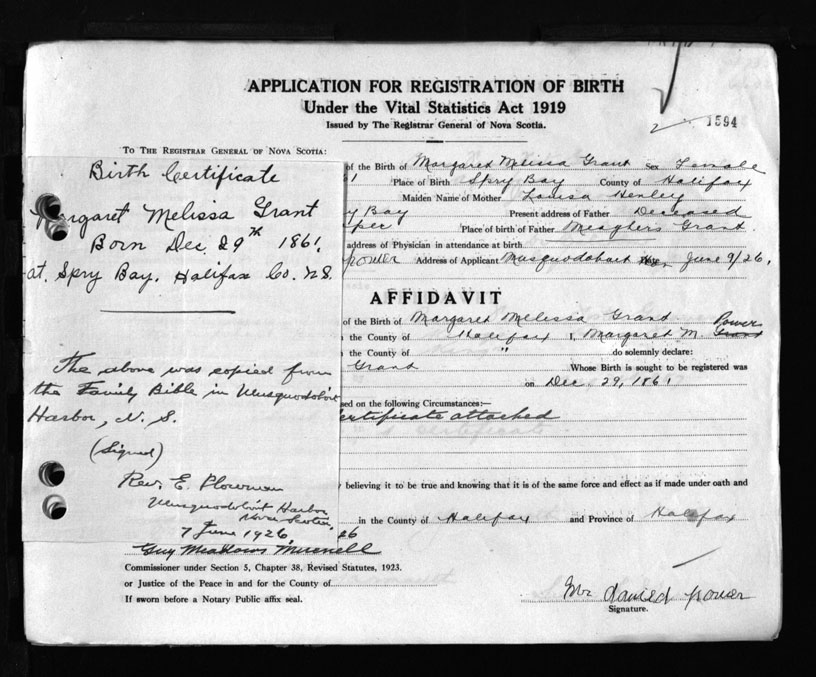 APPLICATION FOR REGISTRATION OF BIRTH
Under the Vital Statistics Act 1919
Issued by The Registrar General of Nova Scotia.
1594
TO THE REGISTRAR GENERAL OF NOVA SCOTIA:
Birth Certificate
Margaret Melissa Grant
Born Dec. 29th 1861,
at Spry Bay, Halifax Co. N.S.
The above was copied from
the Family Bible in Musquodoboit
Harbor, N. S.
(Signed)
Rev. E. Plowman
Musquodoboit Harbor
Nova Scotia,
7 June 1926,
of the Birth of Margaret Melissa Grant Sex Female
Place of Birth Spry Bay County of Halifax
Maiden Name of Mother Louisa Henley
y Bay Present address of Father Deceased
Place of birth of Father Meaghers Grant.
address of Physician in attendance at birth
power Address of Applicant Musquodoboit Har June 9/26,
AFFIDAVIT
of the Birth of Margaret Melissa Grant Power
the County of Halifax I, Margaret M. Grant
the County of " do solemnly declare:
Grant Whose Birth is sought to be registered was
on Dec. 29, 1861
sed on the following Circumstances:—
Certificate attached
believing it to be true and knowing that it is of the same force and effect as if made under oath and
in the County of Halifax and Province of Halifax
26
Guy Meadows
Commissioner under Section 5, Chapter 38, Revised Statutes, 1923.
or Justice of the Peace in and for the County of
If sworn before a Notary Public affix seal.
Mrs daniel power
Signature.